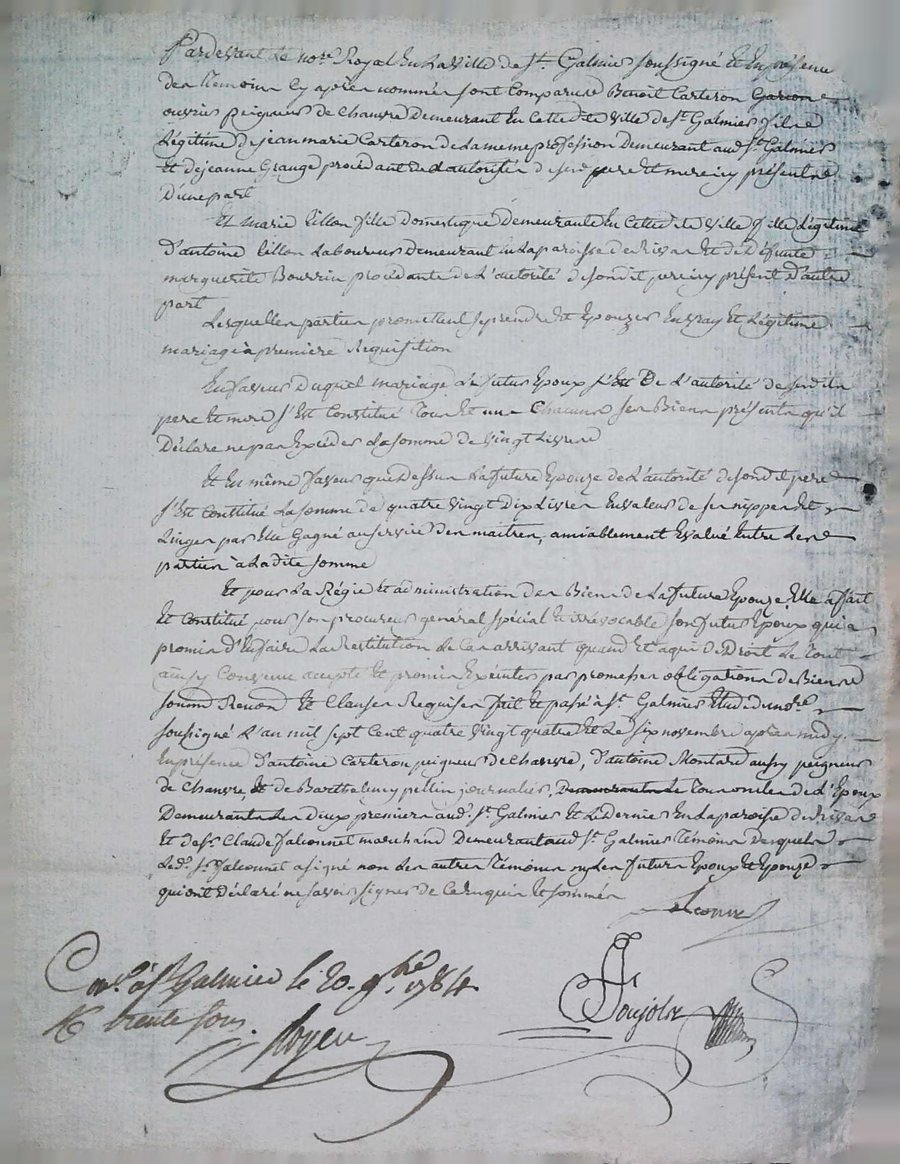 Pardevant Le no.re Royal En La Ville de s.t Galmier soussigné Et En présence
des temoins Cy après nommés sont Comparus Benoit Carteron Garcon
ouvrier Peigneur de Chanvre Demeurant En Cette d.te Ville de s.t Galmier fils
Légitime de jean marie Carteron de La meme profession Demeurant aud. s.t Galmier
Et de jeanne Grange procédant de L'autorité de ses d. pere Et mere icy présents
D'une part
Et marie Villon fille Domestique Demeurante En Cette d.te Ville fille Légitime
d'antoine Villon Laboureur Demeurant En La paroisse de Rivas Et de Défunte
marguerite Bourrin procédante de L'autorité de son dit pere icy présent d'autre
part
Lesquelles parties promettent se prendre Et Epouzer En vray Et Légitime
mariage à premiere Requisition
En faveur Duquel mariage Le futur Epoux s'Est De L'autorité de ses dits
pere Et mere s'Est Constitué Tous Et un Chacuns ses Biens présents qu'il
Déclare ne pas Exceder La somme de vingt Livres
Et En même faveur que Dessus La future Epouze de L'autorité de son dit pere
s'Est Constitué La somme de quatre vingt Dix Livres En valeur de ses nippes Et
Linges par Elle Gagné au service des maitres, amiablement Evalué Entre Les
parties à La dite somme
Et pour La Régie Et administration des Biens de La future Epouze, Elle a fait
Et Constitué pour son procureur général spécial Et irrévocable son futur Epoux qui a
promis D'En faire La Restitution Le Cas arrivant quand Et à qui de Droit Le Tout
ainsy Convenu accepté Et promis Exécuter par promesses obligations de Biens
soumd Renond Et Clauses Requises fait Et passé à s.t Galmier Etude du no.re
soussigné L'an mil sept Cent quatre vingt quatre Et Le six novembre après midy.
En présence d'antoine Carteron peigneur de Chanvre, d'antoine Montard aussy peigneur
de Chanvre, Et de Barthelemy pettin journalier, Demeurants Le Tous oncles de L'Epoux
Demeurants Les deux premiers aud. s.t Galmier Et Le Dernier En La paroisse de Rivas
Et de s.r Claude falconnet marchand Demeurant aud. s.t Galmier Témoins Desquels
Le d. s.r falconnet a signé non Les autres Témoins ny Les futurs Epoux Et Epouze
qui ont Déclaré ne savoir signer de Ce Enquis Et sommés
falconnet
Con.lé à s.t Galmier le 20. 9.bre 1784
R. trente sous.
Poujols
Royer